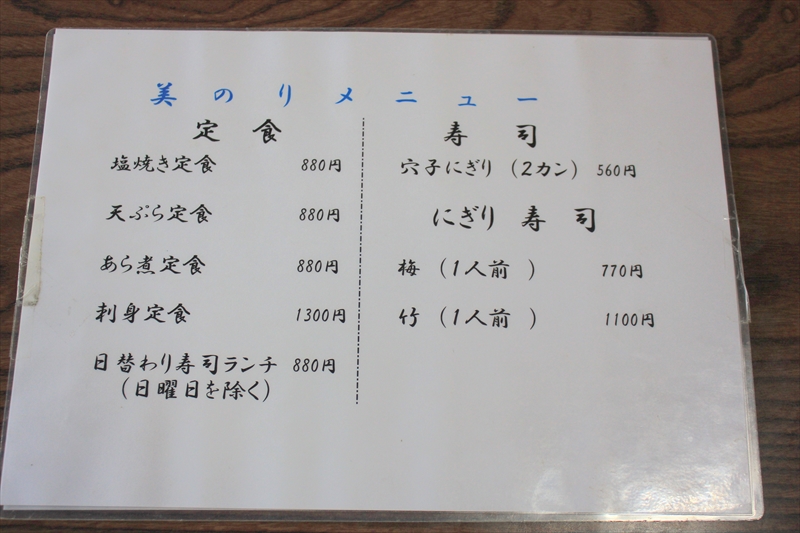 美のりメニュー
定食
塩焼き定食 880円
天ぷら定食 880円
あら煮定食 880円
刺身定食 1300円
日替わり寿司ランチ 880円
（日曜日を除く）
寿司
穴子にぎり（2カン）560円
にぎり寿司
梅（1人前 ） 770円
竹（1人前 ） 1100円